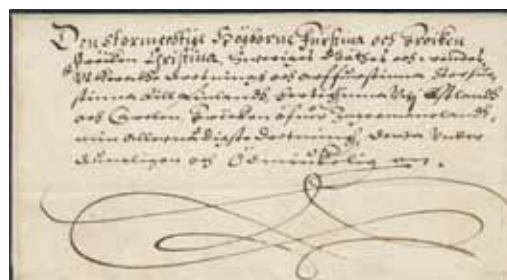 Den stormechtige Högborne Furstinna och Fröiken
Fröiken Christina, Sweriges Göthes och Wendes
Uthkorade Drotning och arffurstinna Storfur-
stinna till Finlandh, Hertiginna Estland
och Carelen, Fröiken öfuer Ingermanelandh,
min allernådigste Drotning, denna
och Ödmiukelig